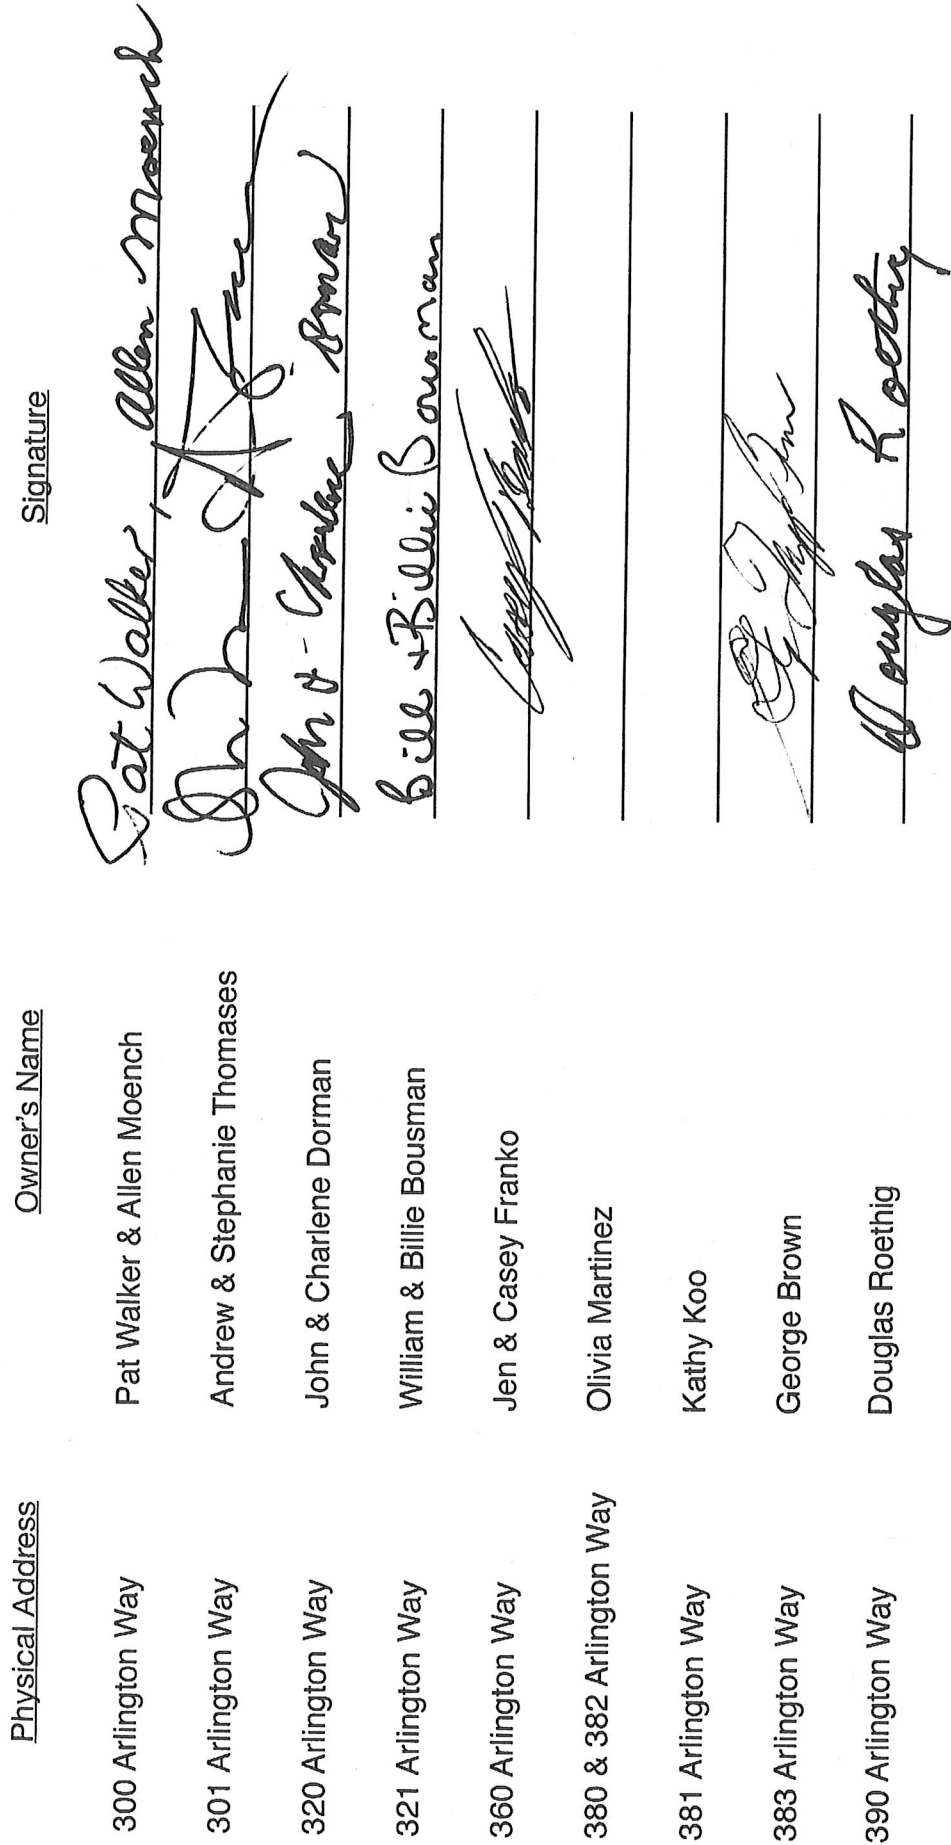 Physical Address Owner's Name Signature
300 Arlington Way Pat Walker & Allen Moench Pat Walker, Allen Moench
301 Arlington Way Andrew & Stephanie Thomases
320 Arlington Way John & Charlene Dorman John & Charlene Dorman
321 Arlington Way William & Billie Bousman Bill + Billie Bousman
360 Arlington Way Jen & Casey Franko
380 & 382 Arlington Way Olivia Martinez
381 Arlington Way Kathy Koo
383 Arlington Way George Brown
390 Arlington Way Douglas Roethig Douglas Roethig